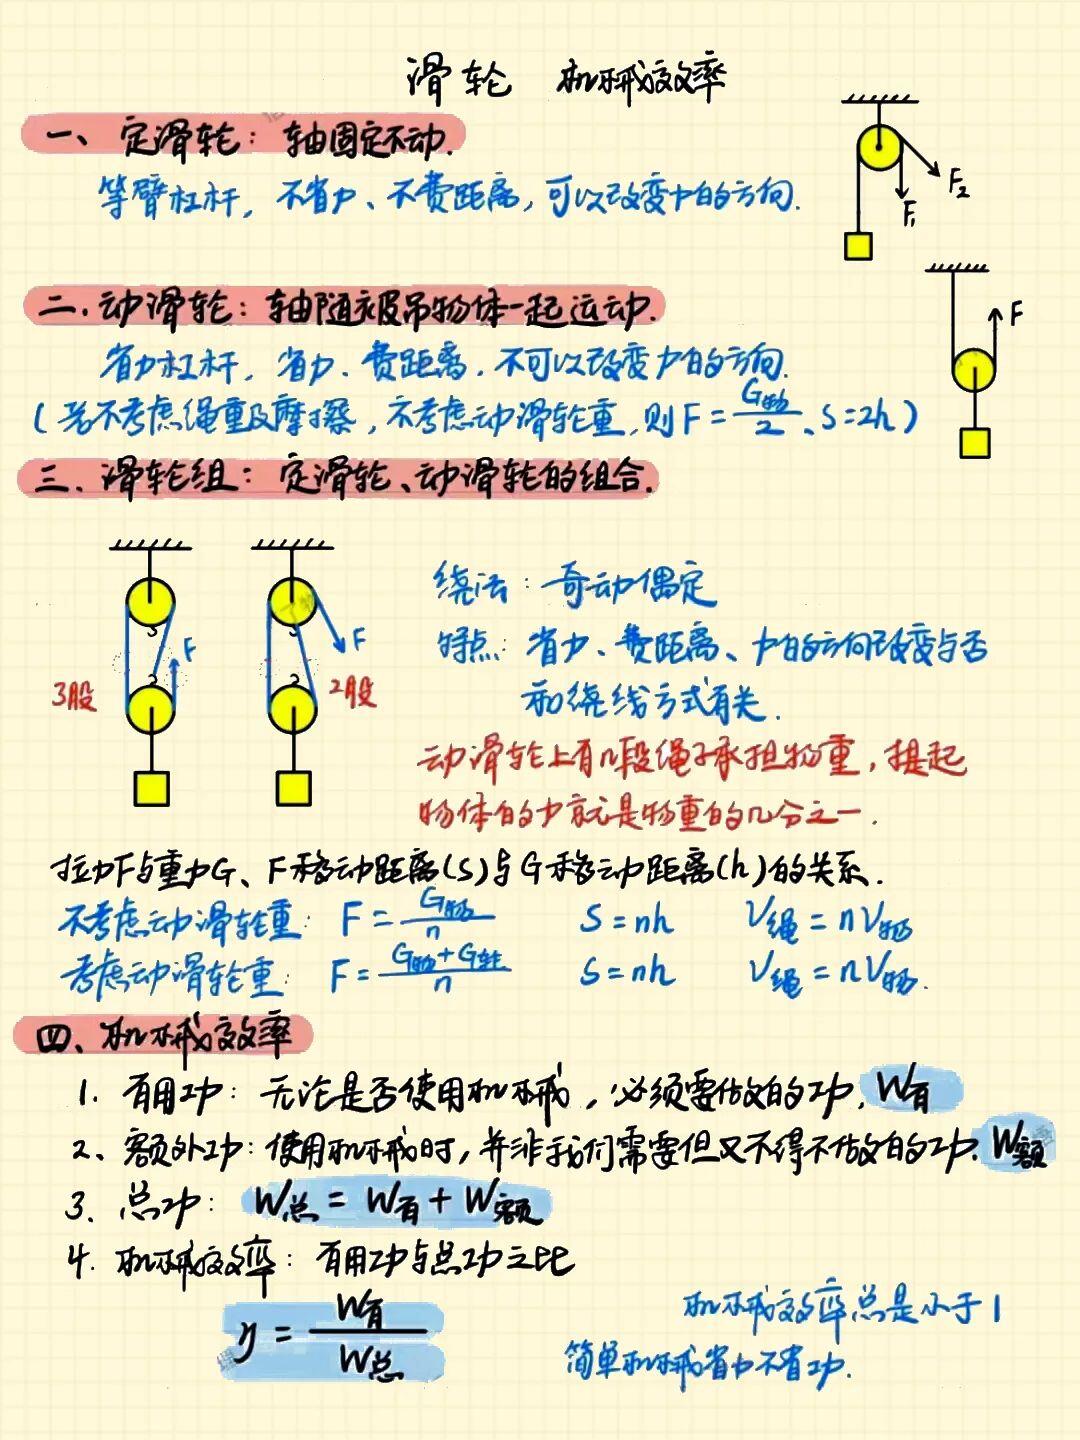 滑轮 机械效率
一、定滑轮：轴固定不动.
等臂杠杆，不省力、不费距离，可以改变力的方向.
F₂
F₁
二.动滑轮：轴随被吊物体一起运动.
F
省力杠杆，省力、费距离.不可以改变力的方向.
(若不考虑绳重及摩擦，不考虑动滑轮重，则F=G物/2、S=2h)
三.滑轮组：定滑轮、动滑轮的组合.
绕法：奇动偶定
F
F
3股
2股
特点：省力、费距离、力的方向改变与否
和绕线方式有关.
动滑轮上有几段绳子承担物重，提起
物体的力就是物重的几分之一.
拉力F与重力G、F移动距离(S)与G移动距离(h)的关系.
不考虑动滑轮重：F=G物/n S=nh V绳=nV物
考虑动滑轮重：F=G物+G轮/n S=nh V绳=nV物.
四、机械效率
1.有用功：无论是否使用机械，必须要做的功.W有
2、额外功：使用机械时，并非我们需要但又不得不做的功.W额
3.总功：W总=W有+W额
4.机械效率：有用功与总功之比
η=W有/W总
机械效率总是小于1
简单机械省力不省功.